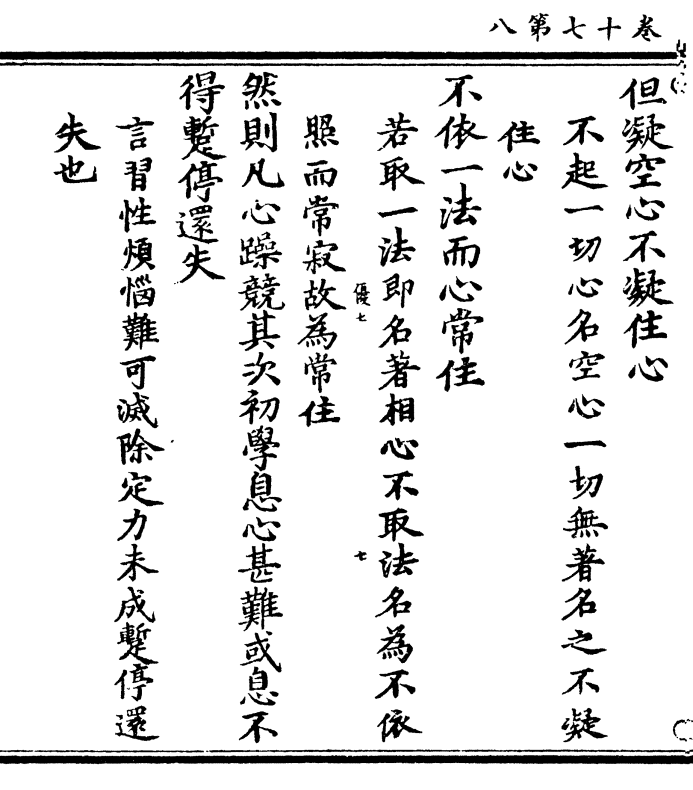 卷十七第八
但凝空心不凝住心
不起一切心名空心一切無著名之不凝
住心
不依一法而心常住
若取一法即名著相心不取法名為不依
優七
七
照而常寂故為常住
然則凡心躁競其次初學息心甚難或息不
得蹔停還失
言習性煩惱難可滅除定力未成蹔停還
失也